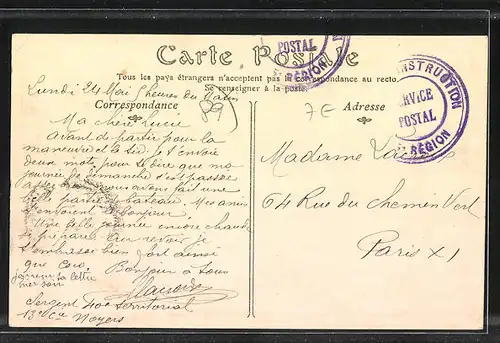 Carte Postale
Tous les pays étrangers n'acceptent pas la correspondance au recto.
Se renseigner à la poste.
Correspondance
Adresse
INSTRUCTION
SERVICE
POSTAL
RÉGION
POSTAL
RÉGION
7E
Lundi 24 Mai heures du Matin
Ma chère Lucie
avant de partir pour la
maneuvre et la je t'envoie
deux mots pour te dire que ma
journée de dimanche s'est passée
assez nous avons fait une
belle partie bateau. Mes amis
t'envoient le bonjour.
Une belle journée encore chaude
se prépare. Au revoir je
t'embrasse bien fort ainsi
que Coco. Bonjour à tous
ta lettre
Sergent 40e territorial
13e Cie Noyers
Madame
64 Rue du Chemin Vert
Paris XI